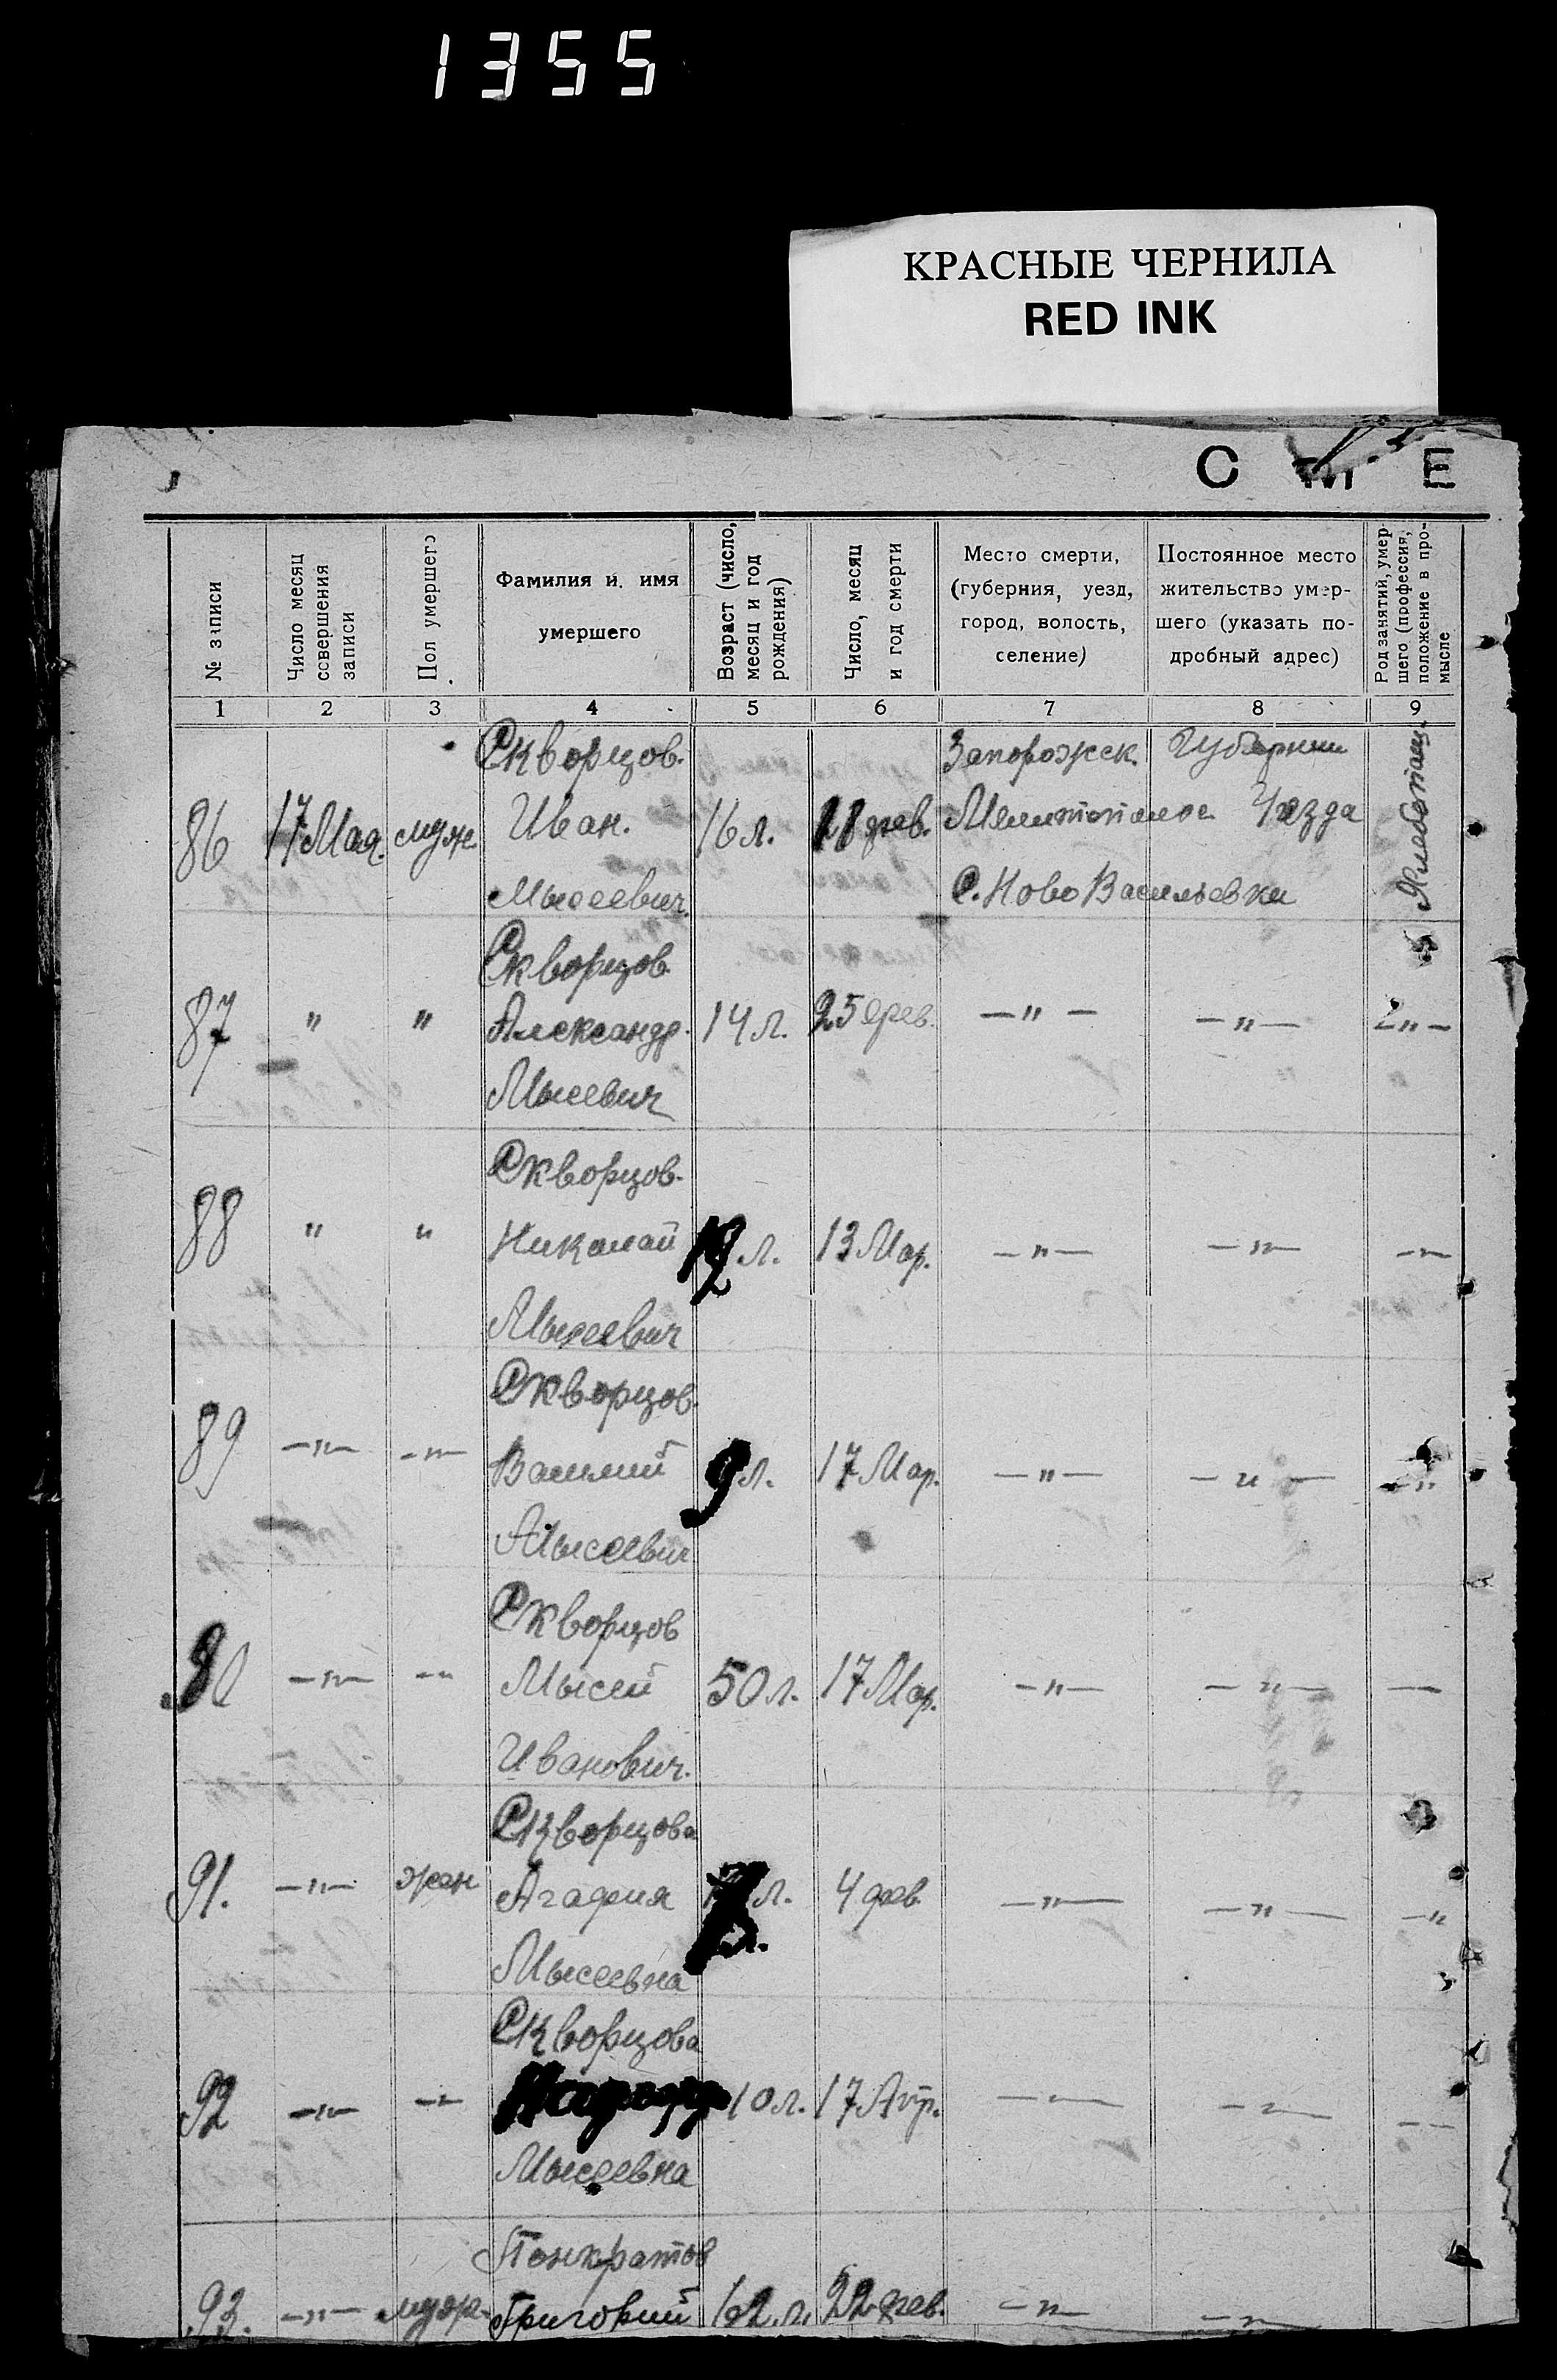 1355
КРАСНЫЕ ЧЕРНИЛА
RED INK
С М Е
№ записи
Число месяц совершения записи
Пол умершего
Фамилия и имя умершего
Возраст (число, месяц и год рождения)
Число, месяц и год смерти
Место смерти, (губерния, уезд, город, волость, селение)
Постоянное место жительство умер-шего (указать по-дробный адрес)
Род занятий, умер шего (профессия, положение в про-мысле
1 2 3 4 5 6 7 8 9
Скворцов. Запорожск. Губернии
86 17 Мая. муж Иван. 16 л. 18 фев. Мелитопольск. Уезда
Мысеевич. С. Ново Васильевки
Скворцов.
87 " " Александр. 14 л. 25 фев. —"— —"— —"—
Мысеевич
Скворцов.
88 " " Николай 12 л. 13 Мар. —"— —"— —"—
Мысеевич
Скворцов.
89 —"— —"— Василий 9 л. 17 Мар. —"— —"— —"—
Мысеевич
Скворцов
—"— —"— Мысей 50 л. 17 Мар. —"— —"— —
Иванович.
Скворцова
91. —"— жен Агафия л. 4 фев. —"— —"— —"
Мысеевна
Скворцова
92 —"— —"— 10 л. 17 Апр. —"— —"— — —
Мысеевна
Понкратов
93. —"— муж. Григорий 62 л. 22 фев. —"— —"—